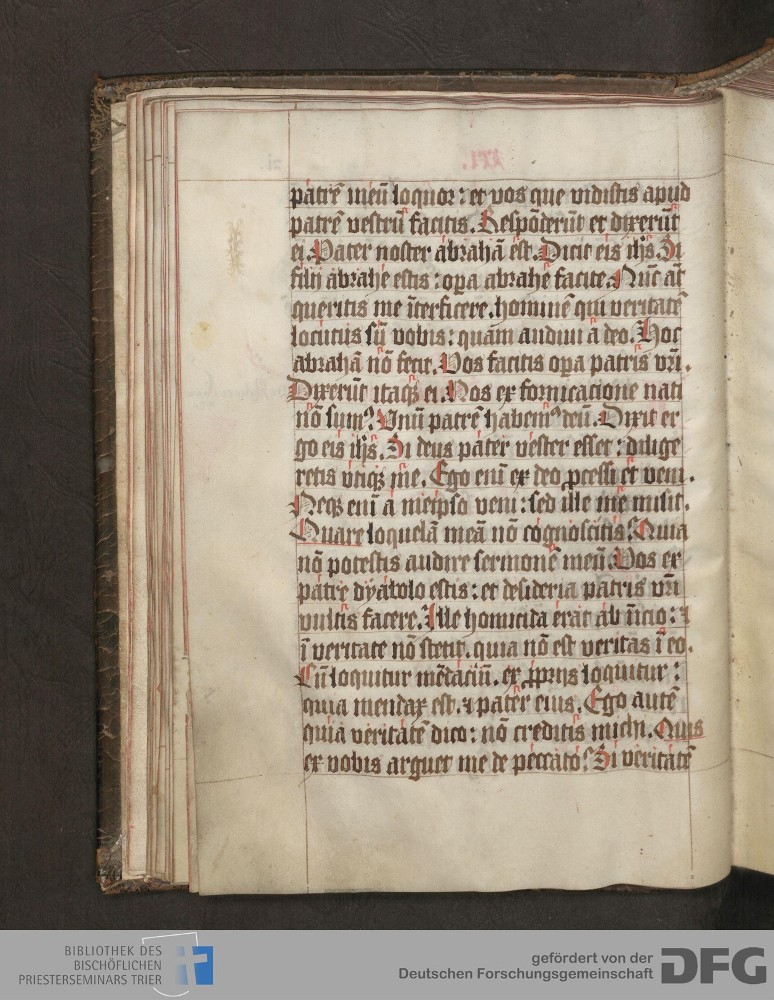 patrē meū loquor: et vos que vidistis apud
patrē vestrū facitis. Respōderūt et dixerūt
ei. Pater noster abrahā est. Dicit eis ihs. Si
filij abrahe estis: opa abrahe facite. Nūc āt
queritis me īterficere. hominē qui veritatē
locutus sū vobis: quam audiui a deo. Hoc
abrahā nō fecit. Vos facitis opa patris vrī.
Dixerūt itaqꝫ ei. Nos ex fornicacione nati
nō sumꝰ. Vnū patrē habemꝰ deū. Dixit er
go eis ihs. Si deus pater vester esset: dilige
retis vtiqꝫ me. Ego enī ex deo ꝓcessi et veni.
Neqꝫ enī a meipso veni: sed ille me misit.
Quare loquelā meā nō cognoscitis? Quia
nō potestis audire sermonē meū. Vos ex
patre dyabolo estis: et desideria patris vrī
vultis facere. Ille homicida erat ab īicio: ⁊
ī veritate nō stetit. quia nō est veritas ī eo.
Cū loquitur mēdaciū. ex ꝓprijs loquitur:
quia mendax est. ⁊ pater eius. Ego autē
quia veritatē dico: nō creditis michi. Quis
ex vobis arguet me de peccato? Si veritatē
BIBLIOTHEK DES
BISCHÖFLICHEN
PRIESTERSEMINARS TRIER
gefördert von der
Deutschen Forschungsgemeinschaft DFG